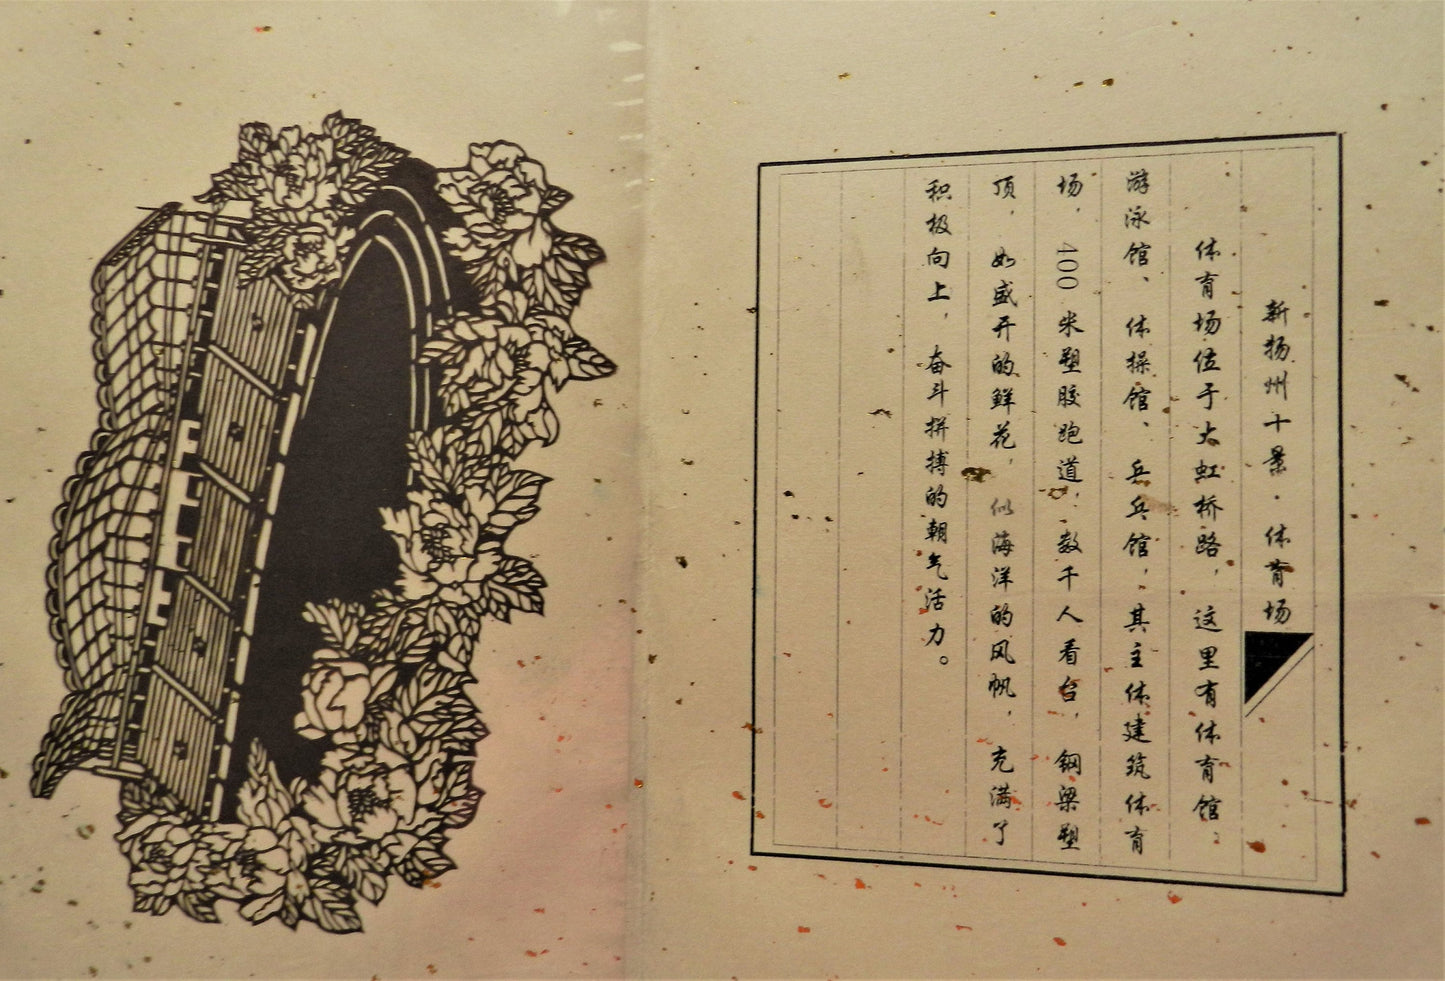 新扬州十景·体育场
体育场位于大虹桥路，这里有体育馆、
游泳馆、体操馆、乒乓馆，其主体建筑体育
场，400米塑胶跑道，数千人看台，钢梁塑
顶，如盛开的鲜花，似海洋的风帆，充满了
积极向上，奋斗拼搏的朝气活力。